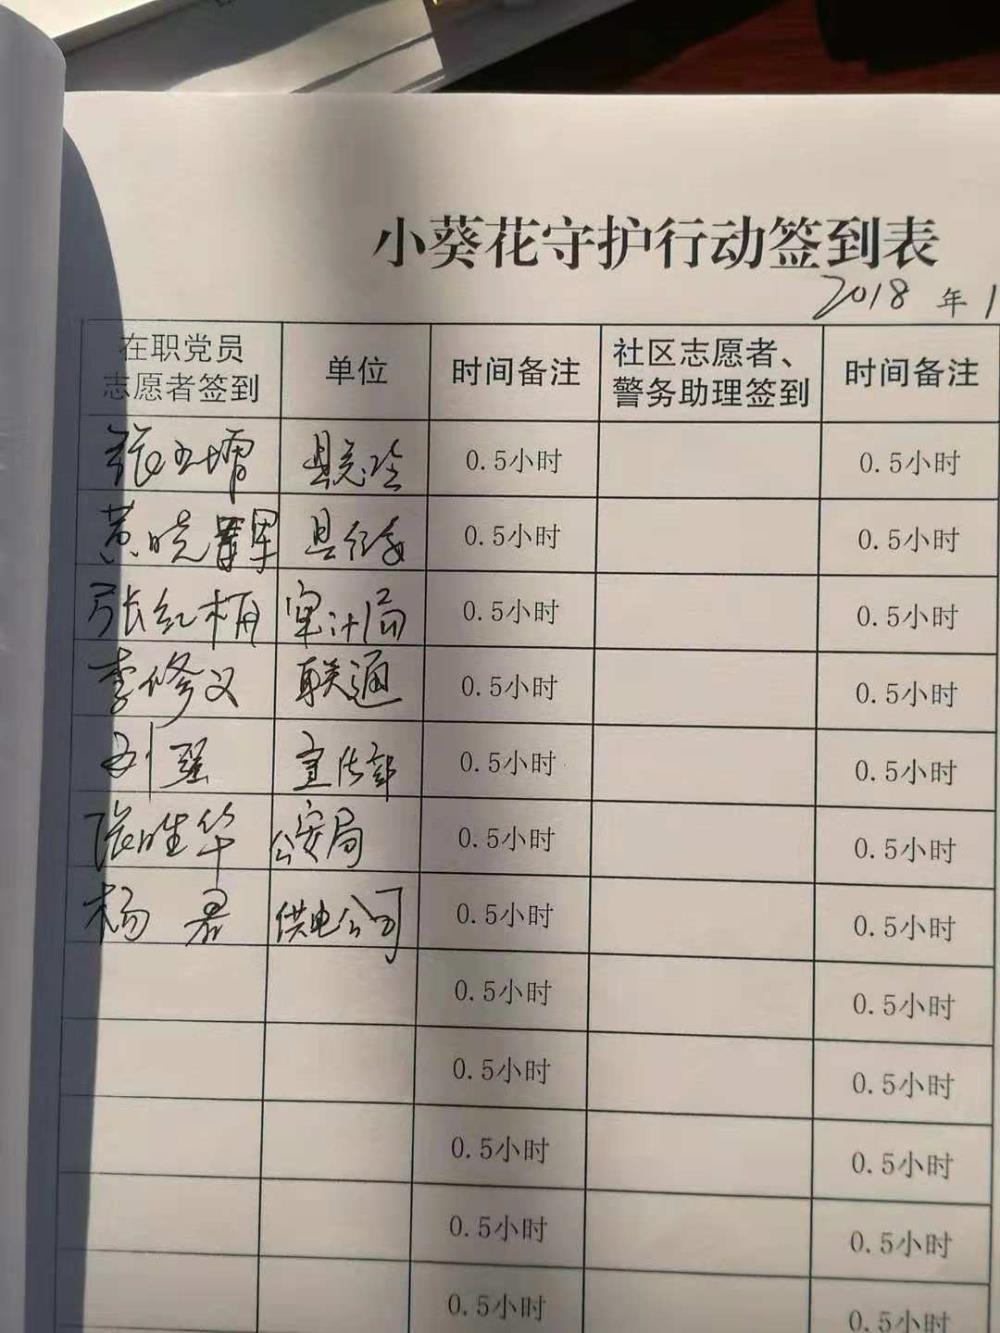 小葵花守护行动签到表
2018 年 1
在职党员 志愿者签到 单位 时间备注 社区志愿者、警务助理签到 时间备注
张玉 0.5小时 0.5小时
黄晓军 县 0.5小时 0.5小时
张红梅 审计局 0.5小时 0.5小时
李修义 联通 0.5小时 0.5小时
刘强 宣传部 0.5小时 0.5小时
张胜华 公安局 0.5小时 0.5小时
杨 供电公司 0.5小时 0.5小时
0.5小时 0.5小时
0.5小时 0.5小时
0.5小时 0.5小时
0.5小时 0.5小时
0.5小时 0.5小时